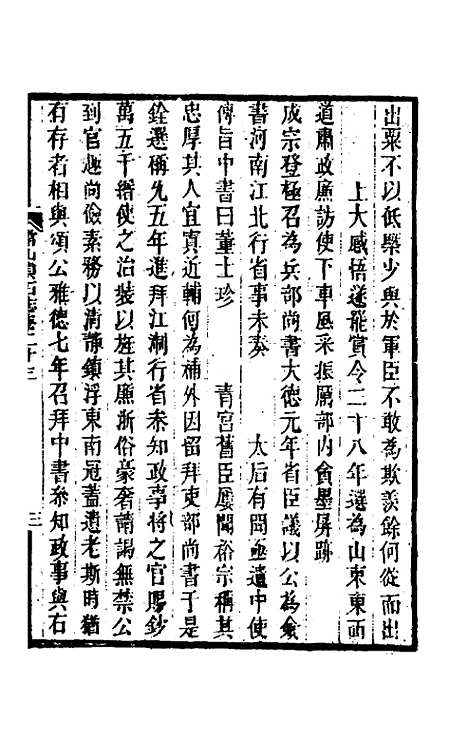 出粟不以低槩少與於軍臣不敢為欺羡餘何從而出
上大感悟遂罷寘令二十八年選為山東東西
道肅政廉訪使下車風采振厲部內貪墨屏跡
成宗登極召為兵部尚書大德元年省臣議以公為僉
書河南江北行省事未奏 太后有聞亟遣中使
傳旨中書曰董士珍 青宮舊臣屢聞裕宗稱其
忠厚其人宜寘近輔何為補外因留拜吏部尚書于是
銓選稱允五年進拜江淛行省叅知政事將之官賜鈔
萬五千緡使之治裝以旌其廉浙俗豪奢請謁無禁公
到官趣尚儉素務以清靜鎮浮東南冠蓋遺老斯時猶
有存者相與頌公雅德七年召拜中書叅知政事與右
常山貞石志卷二十三
三